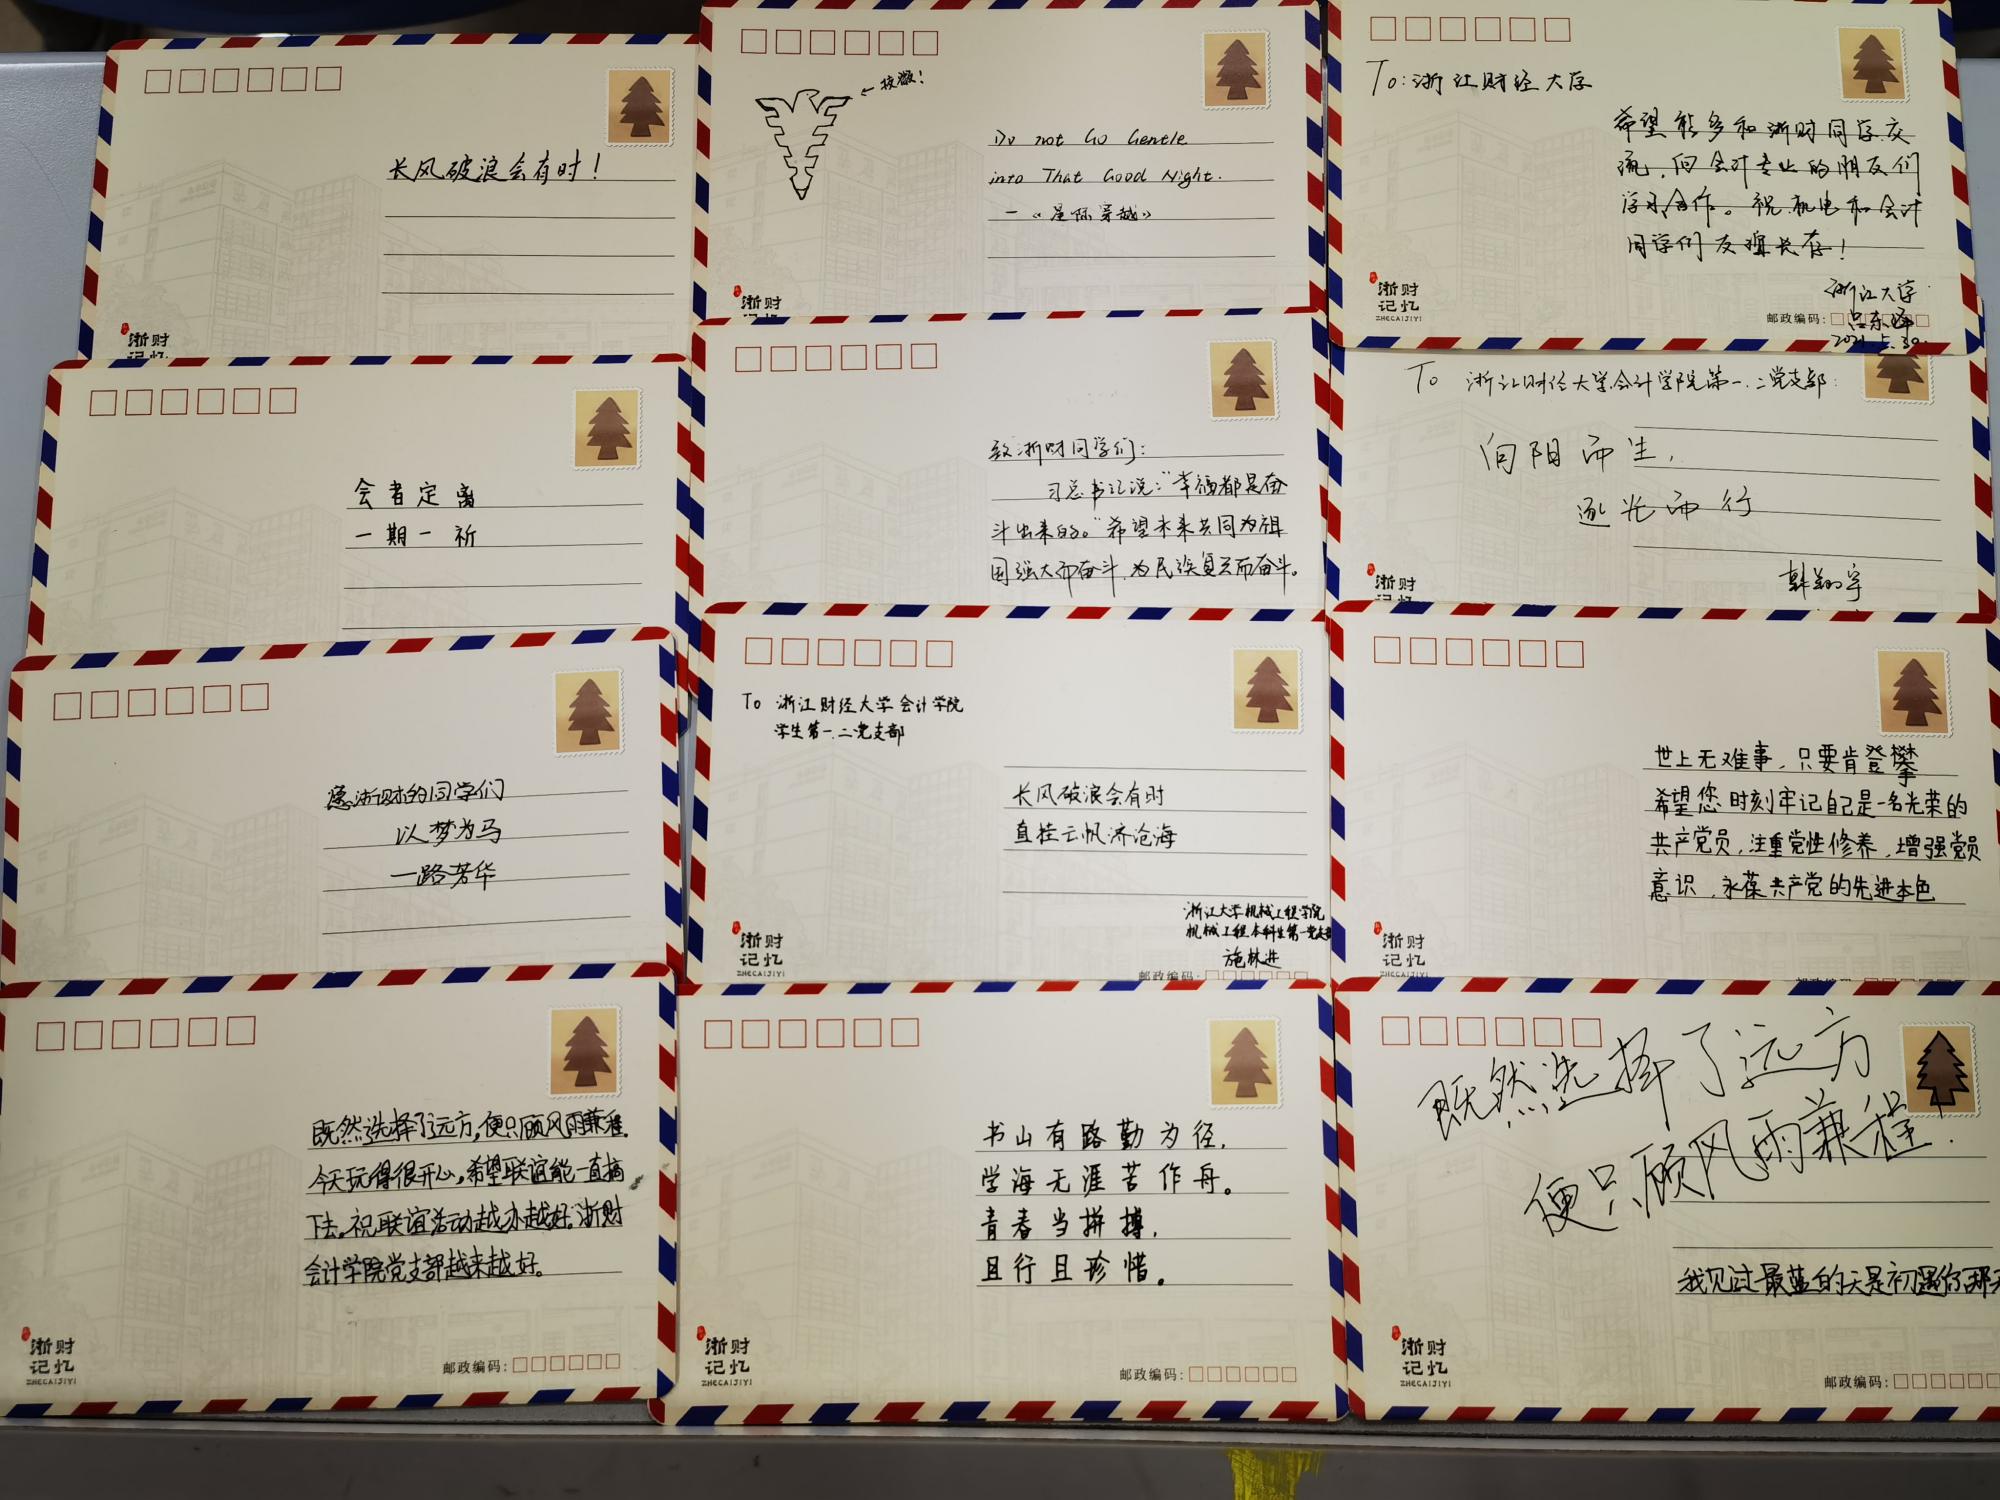 长风破浪会有时！
浙财
记忆
校徽！
Do not Go Gentle
into That Good Night.
—《星际穿越》
浙财
记忆
To：浙江财经大学
希望能多和浙财同学交
流，向会计专业的朋友们
学习合作。祝机电和会计
同学们友谊长存！
浙江大学
吕东峰
2021.5.30.
浙财
记忆
ZHECAIJIYI
邮政编码：
会者定离
一期一祈
致浙财同学们：
习总书记说：“幸福都是奋
斗出来的。”希望未来共同为祖
国强大而奋斗，为民族复兴而奋斗。
To 浙江财经大学会计学院第一、二党支部：
向阳而生，
逐光而行
韩翔宇
浙财
记忆
愿浙财的同学们
以梦为马
一路芳华
To 浙江财经大学会计学院
学生第一、二党支部
长风破浪会有时
直挂云帆济沧海
浙江大学机械工程学院
机械工程本科生第一党支部
施林进
浙财
记忆
ZHECAIJIYI
邮政编码：
世上无难事，只要肯登攀
希望您时刻牢记自己是一名光荣的
共产党员，注重党性修养，增强党员
意识，永葆共产党的先进本色
浙财
记忆
ZHECAIJIYI
邮政编码：
既然选择了远方，便只顾风雨兼程。
今天玩得很开心，希望联谊能一直搞
下去。祝联谊活动越办越好。浙财
会计学院党支部越来越好。
浙财
记忆
ZHECAIJIYI
邮政编码：
书山有路勤为径，
学海无涯苦作舟。
青春当拼搏，
且行且珍惜。
浙财
记忆
ZHECAIJIYI
邮政编码：
既然选择了远方
便只顾风雨兼程！
我见过最蓝的天是初遇你那天
浙财
记忆
ZHECAIJIYI
邮政编码：